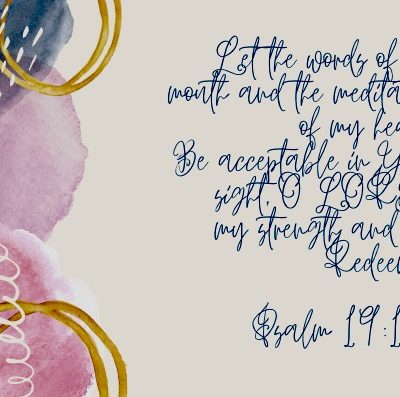 Let the words of
mouth and the medita
of my hea
Be acceptable in Y
sight, O LOR
my strength and
Redee
Psalm 19:1